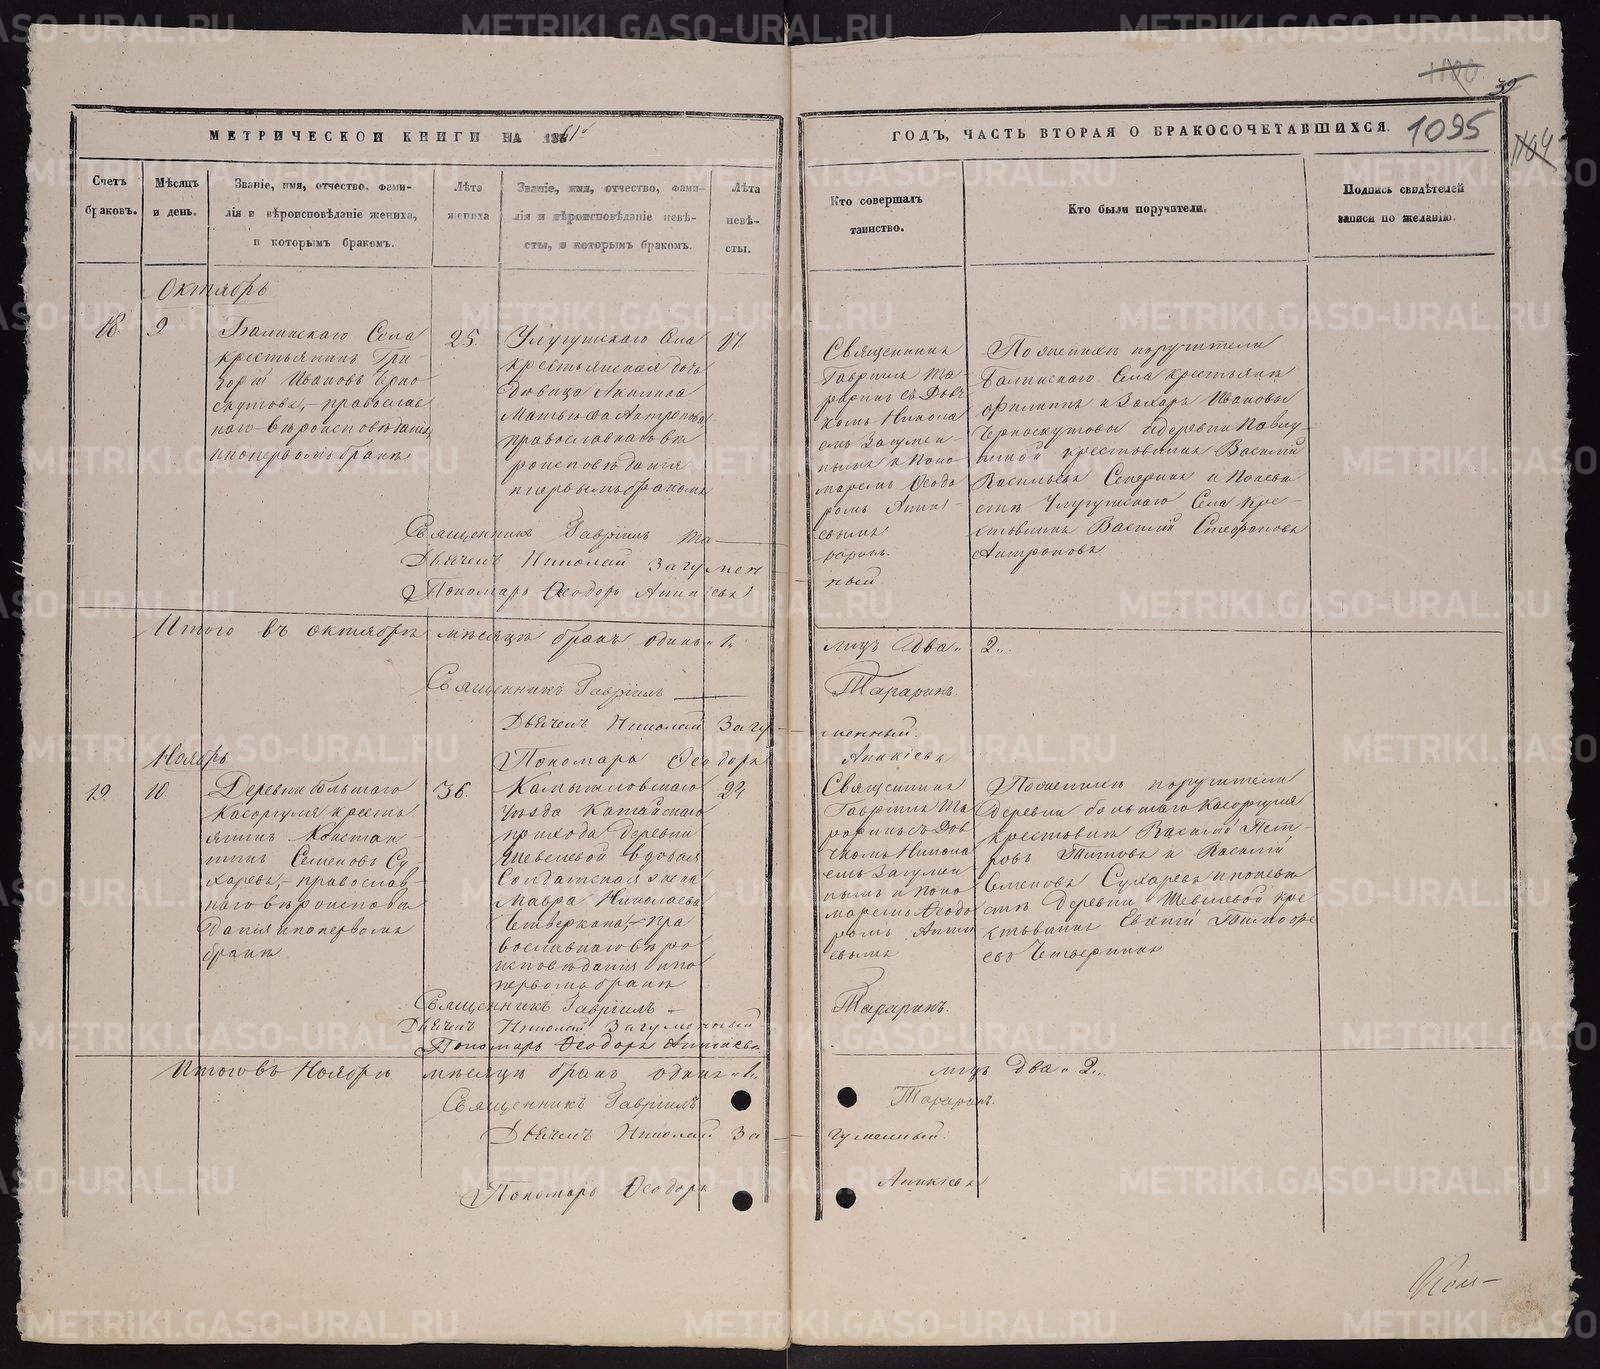 1100
39
МЕТРИЧЕСКОЙ КНИГИ НА 1861й
ГОДЪ, ЧАСТЬ ВТОРАЯ О БРАКОСОЧЕТАВШИХСЯ.
1095
1104
Счетъ браковъ.
Мѣсяцъ и день.
Званіе, имя, отчество, фами-
лія и вѣроисповѣданіе жениха,
и которымъ бракомъ.
Лѣта жениха
Званіе, имя, отчество, фами-
лія и вѣроисповѣданіе невѣ-
сты, и которымъ бракомъ.
Лѣта невѣ-
сты.
Кто совершалъ
таинство.
Кто были поручители.
Подпись свидѣтелей
записи по желанію.
Октябрь
18.
9
Села
крестьянинъ Гри-
горій Ивановъ Черно-
скутовъ, православ
наго вѣроисповѣданія,
и попервомъ бракѣ
25.
Села
крестьянская дочь
Дѣвица Акилина
Матвѣева Антропова
православнаго вѣ
роисповѣданія
и первымъ бракомъ
17
Священникъ
Гавріилъ Та-
раринъ съ Дьяч
комъ Никола
емъ Загумен-
нымъ и Поно
маремъ Ѳеодо
ромъ Аники-
евымъ
раринъ.
ный
По женихѣ поручители
Села крестьяне
Филиппъ и Захаръ Ивановы
Черноскутовы и деревни Павлу-
крестьянинъ Василій
Васильевъ и по невѣ
стѣ Села кре-
стьянинъ Василій Стефановъ
Антроповъ
Священникъ Гавріилъ Та
Дьячекъ Николай Загумен
Пономарь Ѳеодоръ Аникіевъ
Итого въ октябрѣ мѣсяцѣ бракъ одинъ „1„
лицъ два „ 2„
Священникъ Гавріилъ
Тараринъ.
Дьячекъ Николай Загу
менный.
Пономарь Ѳеодоръ
Аникіевъ
Ноябрь
19.
10.
Деревни большаго
Касаргуля кресть
янинъ Констан-
тинъ Семеновъ Су-
харевъ, православ-
наго вѣроисповѣ
данія и по первомъ
бракѣ
36.
Камышловскаго
Уѣзда Катайскаго
прихода Деревни
Шевелевой вдовая
Солдатская жена
Мавра Николаева
Четверкина, пра
вославнаго вѣро
исповѣданія и по
первомъ бракѣ
Священникъ
Гавріилъ Та
раринъ съ Дья
чкомъ Никола
емъ Загумен
нымъ и Поно
маремъ Ѳеодо
ромъ Аники
евымъ
По женихѣ поручители
Деревни большаго Касаргуля
крестьяне Василій Пет-
ровъ Титовъ и Василій
Семеновъ Сухаревъ и по невѣ
стѣ Деревни Шевелевой кре
стьянинъ Евѳимій Тимофе
евъ
Священникъ Гавріилъ
Тараринъ.
Дьячекъ Николай Загуменный
Пономарь Ѳеодоръ Аникіевъ
Итого въ Ноябрѣ мѣсяцѣ бракъ одинъ „1„
лицъ два „ 2„
Священникъ Гавріилъ
Тараринъ.
Дьячекъ Николай За
гуменный.
Пономарь Ѳеодоръ
Аникіевъ
METRIKI.GASO-URAL.RU